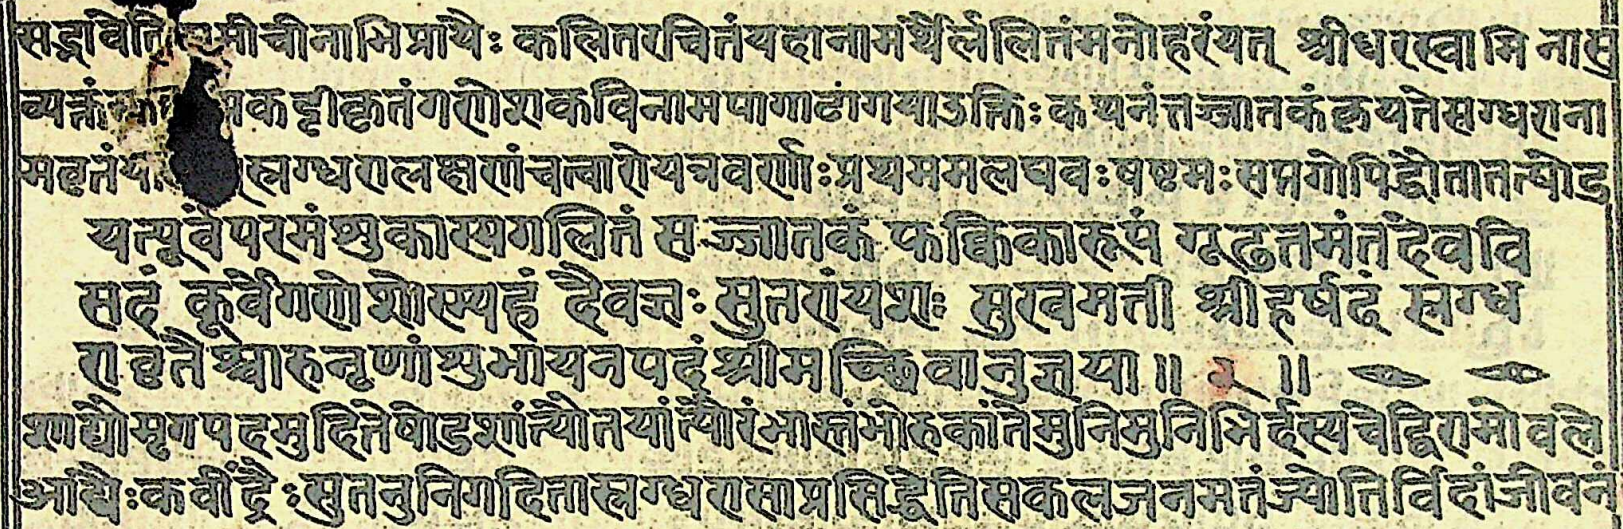 सद्भावेति मीचीनाभिप्रायैः कलितरचितंयदानामर्थैर्ललितंमनोहरंयत् श्रीधरस्वामि नासु
व्यक्तं कट्टीकृतंगणेशकविनामपागाढांगयाऽक्तिः कथनंत्तज्जातकंकथयतेसग्धराना
मवृतंया स्रग्धरालक्षणंचत्वारोयत्रवर्णाः प्रथममलघवः षष्टमः सप्तगोपिद्वौतातत्षोड
यत्पूर्वंपरमंशुकास्यगलितं सज्जातकं फक्किकारूपं गूढतमंतंदेववि
सदं कूर्वेगणेशोस्म्यहं दैवज्ञः सुतरांयशः सुखमत्ती श्रीहर्षदं स्रग्ध
रावृतैश्चारुनृणांशुभायनपदंश्रीमच्छिवानुज्ञया ॥ ३ ॥
शाद्यौमृगपदमुदितेषोडशांत्यौतयांत्यौरंभास्तंभोरुकांतेमुनिमुनिभिर्दस्यचेद्विरामोवले
आद्यैः कवींद्रैः सुतनुनिगदितास्रग्धरासाप्रसिद्धेतिसकलजनमतंज्योतिर्विदांजीवनं